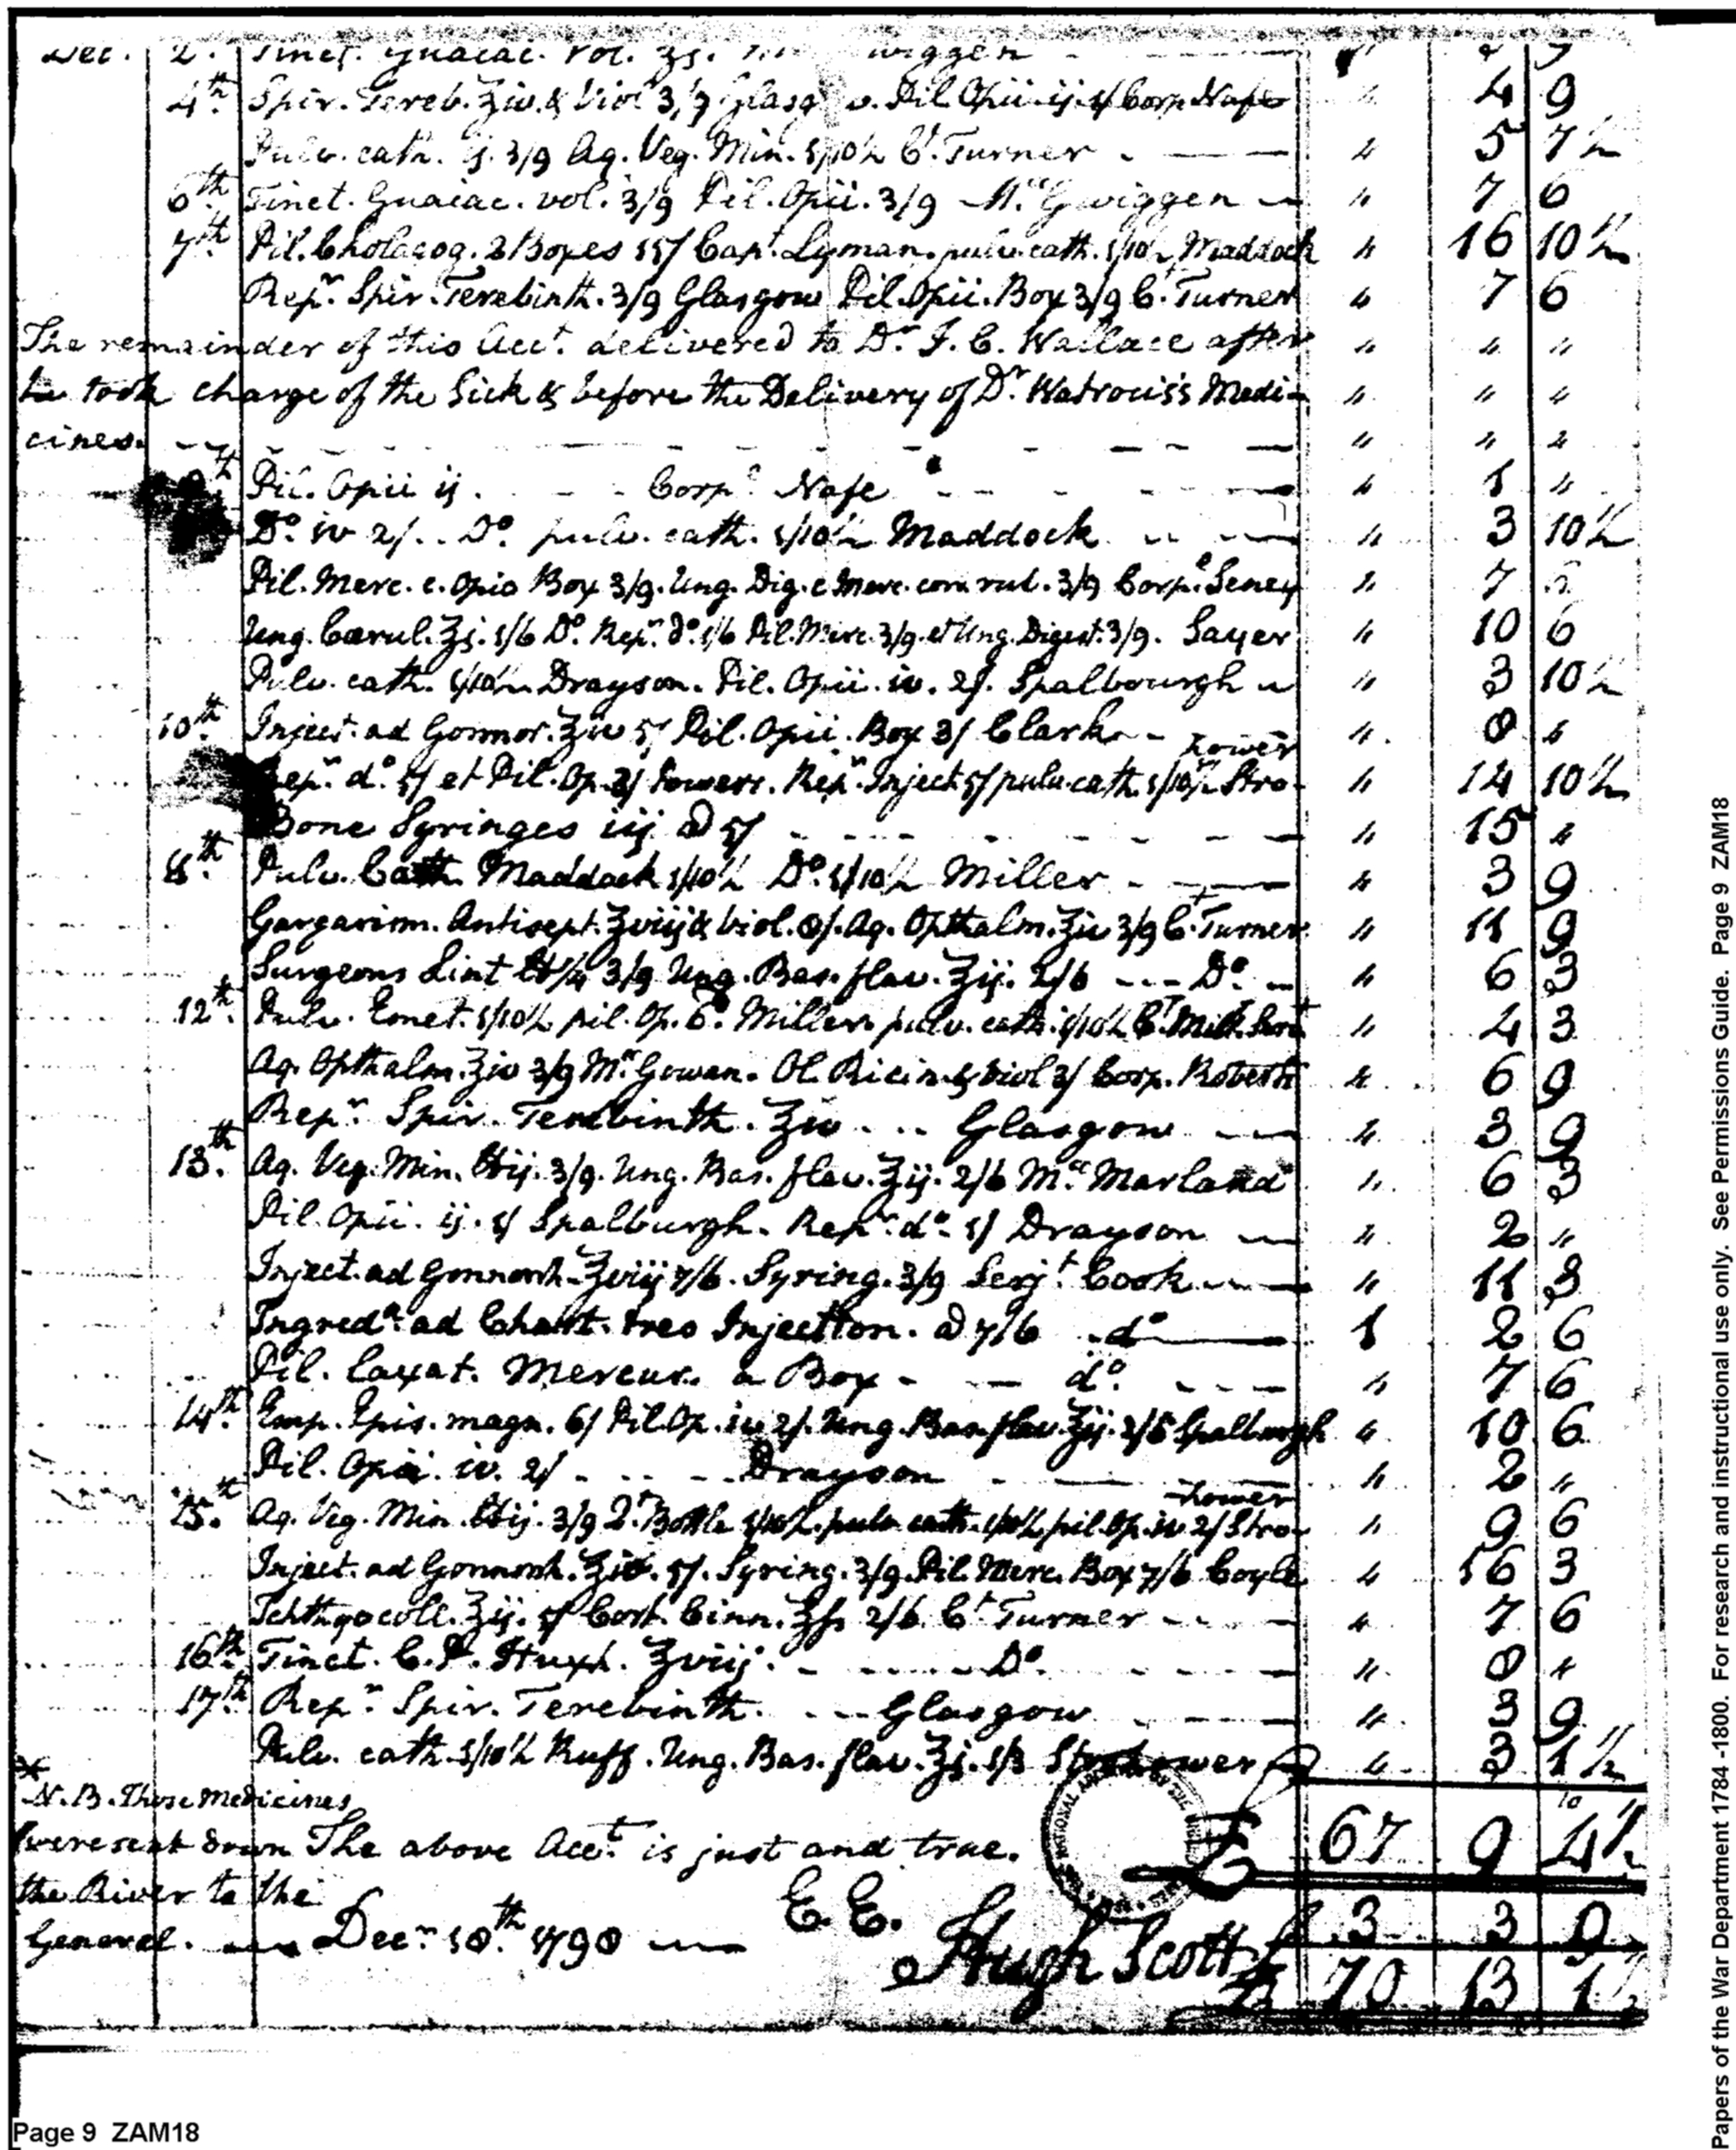 Dec. 2. Tinct. Guaiac. vol. ʒj. wiggen
4th. Spir. Tereb. ʒiv. & Viol 3/9 Glasgow. Pil Opii ij. 1/ Corp Nafe " 4 9
Pulv. cath. 3/9 Aq. Veg. Min. 1/10½ Ct. Turner " 5 7½
6th Tinct. Guaiac. vol. 3/9 Pil. Opii. 3/9 Mc. Gwiggen " 7 6
7th Pil. Cholagog. 2 Boxes 15/ Capt. Lyman. pulv. cath. 1/10½ Maddock " 16 10½
Repn. Spir. Terebinth. 3/9 Glasgow Pil. Opii. Box 3/9 C. Turner " 7 6
The remainder of this Acct. delivered to Dr. J. C. Wallace after " " "
he took charge of the Sick & before the Delivery of Dr. Watrous's Medi- " " "
cines. " " "
Pil. Opii ij. Corpl. Nafe " 1 "
Do. iv 2/. Do. pulv. cath. 1/10½ Maddock " 3 10½
Pil. Merc. c. Opio Box 3/9. Ung. Dig. c Merc. corn rub. 3/9 Corpl. Seney " 7 6
Ung. Cærul. ʒj. 1/6 Do. Repn. do. 1/6 Pil. Merc. 3/9. et Ung. Digest. 3/9. Sayer " 10 6
Pulv. cath. 1/10½ Drayson. Pil. Opii. iv. 2/. Spalbourgh " 3 10½
10th. Inject. ad Gonnor. ʒiv 5/ Pil. Opii. Box 3/ Clark " 8 "
hower
Repn. do. 5/ et Pil. Op. 2/ Powers. Repn. Inject 5/ pulv. cath. 1/10½ Stro- " 14 10½
Bone Syringes iij @ 5/ " 15 "
8th. Pulv. Cath. Maddock 1/10½ Do. 1/10½ Miller " 3 9
Gargarism. Antisept. ʒviij & viol. 8/. Aq. Opthalm. ʒiv 3/9 C. Turner " 11 9
Surgeons Lint ℔¼ 3/9 Ung. Bas. flav. ʒij. 2/6 Do. " 6 3
12th. Pulv. Emet. 1/10½ pil. Op. 6d. Miller pulv. cath. 1/10½ " 4 3
Aq. Opthalm. ʒiv 3/9 Mc. Gowan. Ol. Ricin. & Viol 3/ Corp. Roberts " 6 9
Repn. Spir. Terebinth. ʒiv Glasgow " 3 9
13th. Aq. Veg. Min. ℔ij. 3/9. Ung. Bas. flav. ʒij. 2/6 Mc. Marland " 6 3
Pil. Opii. ij. 1/ Spalburgh. Repn. do. 1/ Drayson " 2 "
Inject. ad Gonnorrh. ʒviij 7/6. Syring. 3/9 Serjt. Cook " 11 3
Ingredts. ad Chart. tres Injection. @ 7/6 do 1 2 6
Pil. laxat. Mercur. a Box do. " 7 6
14th. Emp. Epis. magn. 6/ Pil. Op. iv 2/. Ung. Bas. flav. ʒij. 2/6 Spalburgh " 10 6
Pil. Opii. iv. 2/ Drayson " 2 "
hower
15th. Aq. Veg. Min. ℔ij. 3/9 Qt. Bottle 1/10½. pulv cath. 1/10½ pil. Op. iv 2/ Stro- " 9 6
Inject. ad Gonnorrh. ʒiv. 5/. Syring. 3/9. Pil. Merc. Box 7/6 Coyle " 16 3
Ichthyocoll. ʒij. 5/ Cort. Cinn. ʒß 2/6 Ct. Turner " 7 6
16th. Tinct. C. P. Huxh. ʒviij. Do. " 8 "
17th. Repn. Spir. Terebinth. Glasgow " 3 9
Pulv. cath. 1/10½ Ruff. Ung. Bas. flav. ʒj. 1/3 Strohower " 3 1½
N. B. These Medicines
were sent down The above Acct. is just and true. £ 67 9 4½
the River to the
General. Decr. 18th. 1790 E. E. 3 3 9
Hugh Scott £ 70 13 1½
Page 9 ZAM18
Papers of the War Department 1784 -1800. For research and instructional use only. See Permissions Guide. Page 9 ZAM18